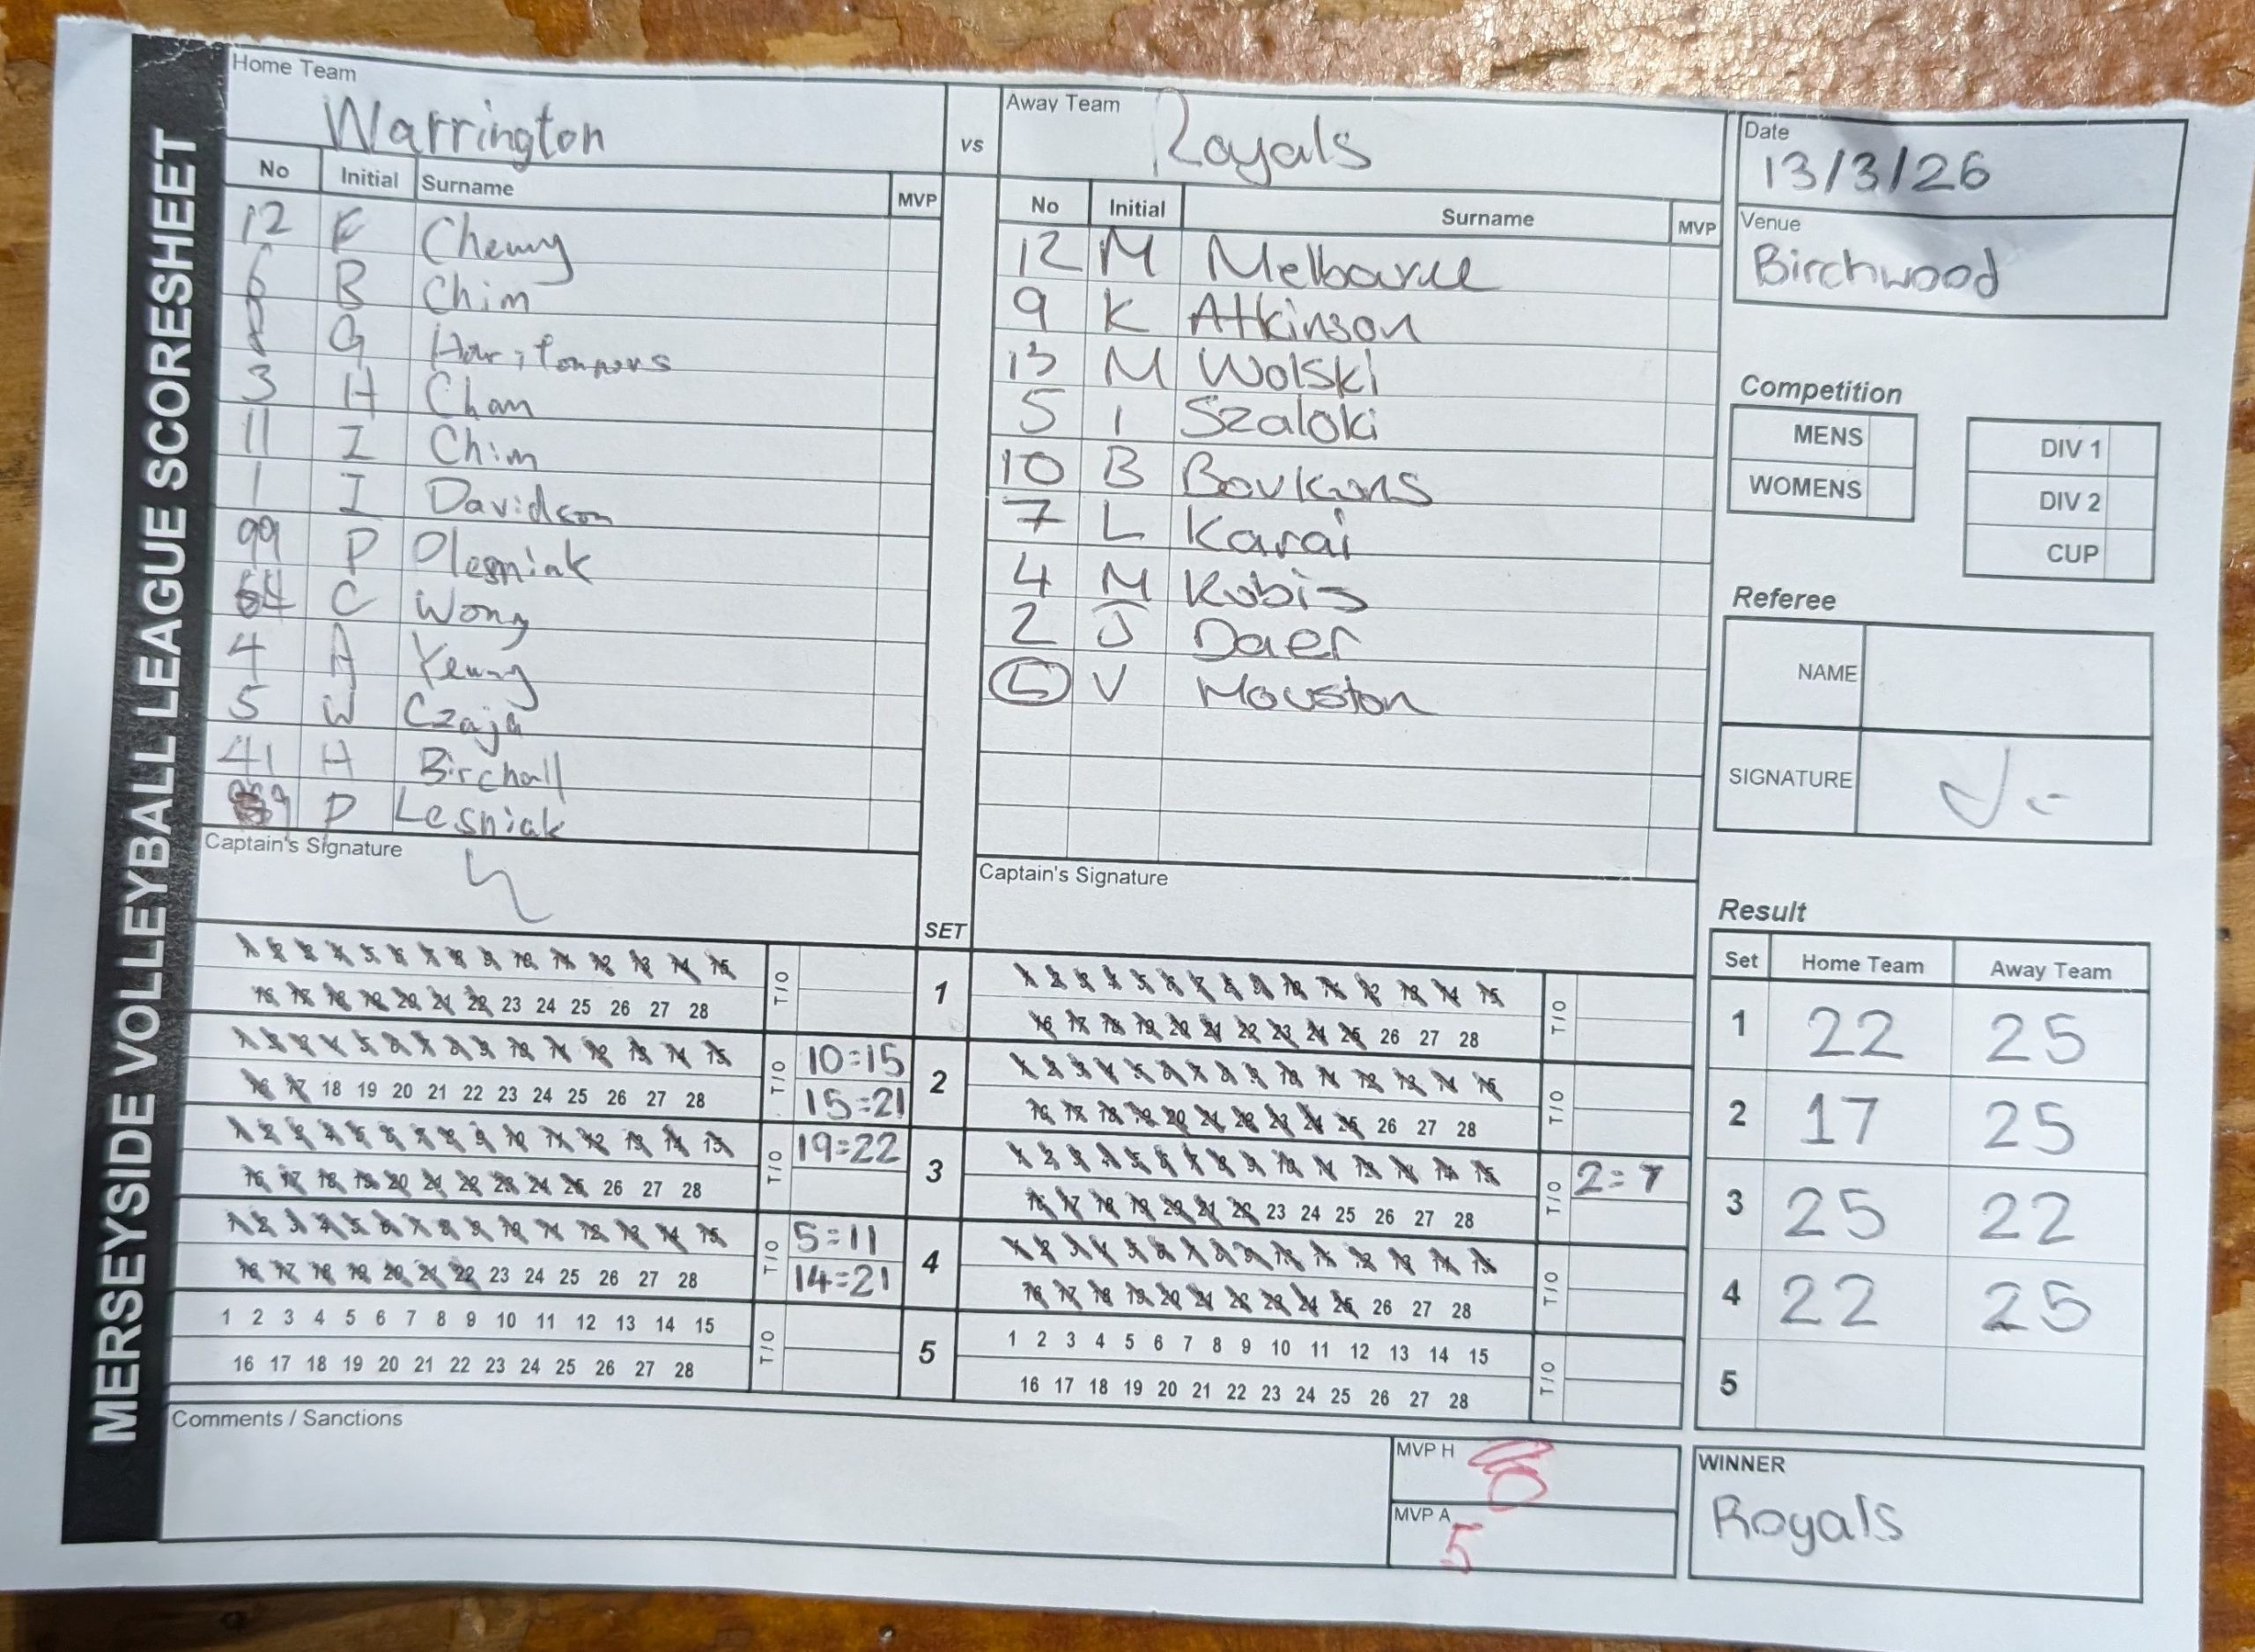 MERSEYSIDE VOLLEYBALL LEAGUE SCORESHEET
Home Team
Warrington
vs
Away Team
Royals
Date
13/3/26
Venue
Birchwood
No Initial Surname MVP
12 K
6 B Chim
8 G
3 H Chan
11 I Chim
1 I Davidson
99 P Olesniak
64 C Wong
4 A Yeung
5 W Czaja
41 H Birchall
P Lesniak
Captain's Signature
No Initial Surname MVP
12 M Melbourne
9 K Atkinson
13 M Wolski
5 I Szaloki
10 B
7 L Karai
4 M Kubis
2 J Daer
V Houston
Captain's Signature
Competition
MENS
WOMENS
DIV 1
DIV 2
CUP
Referee
NAME
SIGNATURE
SET
1 2 3 4 5 6 7 8 9 10 11 12 13 14 15
16 17 18 19 20 21 22 23 24 25 26 27 28
T/O
1
1 2 3 4 5 6 7 8 9 10 11 12 13 14 15
16 17 18 19 20 21 22 23 24 25 26 27 28
T/O
1 2 3 4 5 6 7 8 9 10 11 12 13 14 15
16 17 18 19 20 21 22 23 24 25 26 27 28
T/O
10=15
15=21
2
1 2 3 4 5 6 7 8 9 10 11 12 13 14 15
16 17 18 19 20 21 22 23 24 25 26 27 28
T/O
1 2 3 4 5 6 7 8 9 10 11 12 13 14 15
16 17 18 19 20 21 22 23 24 25 26 27 28
T/O
19=22
3
1 2 3 4 5 6 7 8 9 10 11 12 13 14 15
16 17 18 19 20 21 22 23 24 25 26 27 28
T/O
2=7
1 2 3 4 5 6 7 8 9 10 11 12 13 14 15
16 17 18 19 20 21 22 23 24 25 26 27 28
T/O
5=11
14=21
4
1 2 3 4 5 6 7 8 9 10 11 12 13 14 15
16 17 18 19 20 21 22 23 24 25 26 27 28
T/O
1 2 3 4 5 6 7 8 9 10 11 12 13 14 15
16 17 18 19 20 21 22 23 24 25 26 27 28
T/O
5
1 2 3 4 5 6 7 8 9 10 11 12 13 14 15
16 17 18 19 20 21 22 23 24 25 26 27 28
T/O
Result
Set Home Team Away Team
1 22 25
2 17 25
3 25 22
4 22 25
5
Comments / Sanctions
MVP H
8
MVP A
5
WINNER
Royals